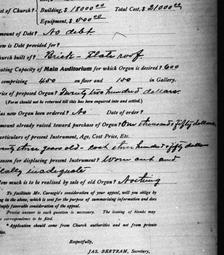 st of Church? Building, $18000.00 Total Cost, $21000.00
Equipment, $
Amount of Debt? No debt
is Debt provided for?
Church built of? Brick - Slate roof
ating Capacity of Main Auditorium for which Organ is desired? 600
comprising 400 on floor and 100 in Gallery.
rice of proposed Organ? Twenty two hundred dollars
(Form should not be returned till this has been enquired into and settled)
as new Organ been ordered? No Date of order?
mount already raised toward purchase of Organ? One thousand fifty dollars
articulars of present Instrument, Age, Cost Price, Etc.
three years old - cost three hundred fifty dollars
eason for displacing present Instrument? Worn out and
inadequate
ow much is to be realized by sale of old Organ? Nothing
To facilitate Mr. Carnegie's consideration of your appeal, will you oblige by
ing in the above, which is sent for the purpose of summarizing information and
mply favorable consideration of the appeal.
Precise answer to each question is necessary. The leaving of blanks may
a correspondence to be filed.
Application should come from Church authorities and not from private
Respectfully,
JAS. BERTRAM, Secretary,